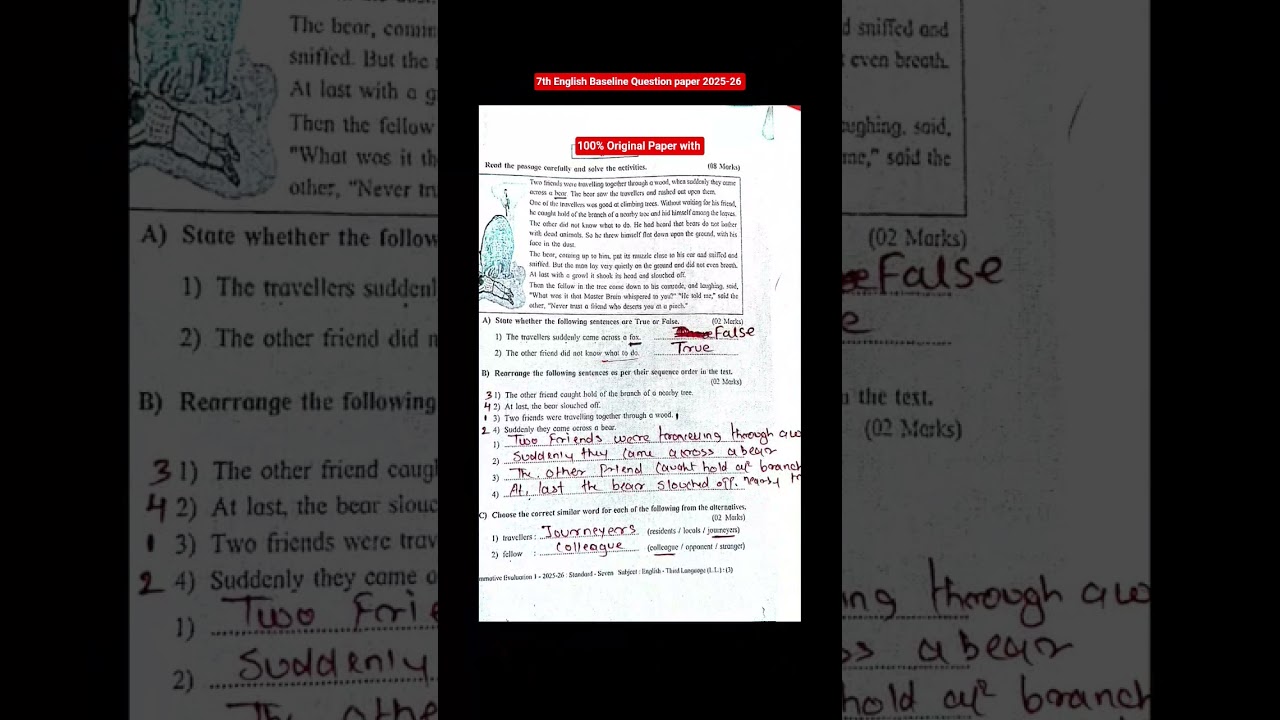 7th English Baseline Question paper 2025-26
100% Original Paper with
Read the passage carefully and solve the activities. (08 Marks)
Two friends were travelling together through a wood, when suddenly they came
across a bear. The bear saw the travellers and rushed out upon them.
One of the travellers was good at climbing trees. Without waiting for his friend,
he caught hold of the branch of a nearby tree and hid himself among the leaves.
The other did not know what to do. He had heard that bears do not bother
with dead animals. So he threw himself flat down upon the ground, with his
face in the dust.
The bear, coming up to him, put its muzzle close to his ear and sniffed and
sniffed. But the man lay very quietly on the ground and did not even breath.
At last with a growl it shook its head and slouched off.
Then the fellow in the tree come down to his comrade, and laughing, said,
"What was it that Master Bruin whispered to you?" "He told me," said the
other, "Never trust a friend who deserts you at a pinch."
A) State whether the following sentences are True or False. (02 Marks)
1) The travellers suddenly came across a fox. False
2) The other friend did not know what to do. True
B) Rearrange the following sentences as per their sequence order in the text.
(02 Marks)
3 1) The other friend caught hold of the branch of a nearby tree.
4 2) At last, the bear slouched off.
1 3) Two friends were travelling together through a wood.
2 4) Suddenly they came across a bear.
1) Two Friends were traneving through a wo
2) Suddenly they came across a bear
3) The other friend caught hold of branch
4) At last the bear slouched off. nearby tr
C) Choose the correct similar word for each of the following from the alternatives.
(02 Marks)
1) travellers : Journeyers (residents / locals / journeyers)
2) fellow : Colleague (colleague / opponent / stranger)
mmative Evaluation 1 - 2025-26 : Standard - Seven Subject : English - Third Language (L.L) : (3)
The bear, comin
sniffed. But the
At last with a g
Then the fellow
"What was it th
other, "Never tru
A) State whether the follow
1) The travellers suddenl
2) The other friend did n
B) Rearrange the following
3 1) The other friend caugh
4 2) At last, the bear slouc
1 3) Two friends were trav
2 4) Suddenly they came
1) Two Frie
2) Suddenly
3) The othe
d sniffed and
even breath.
ughing, said,
me," said the
(02 Marks)
False
e
n the text.
(02 Marks)
ng through a wo
ss a bear
hold of branch